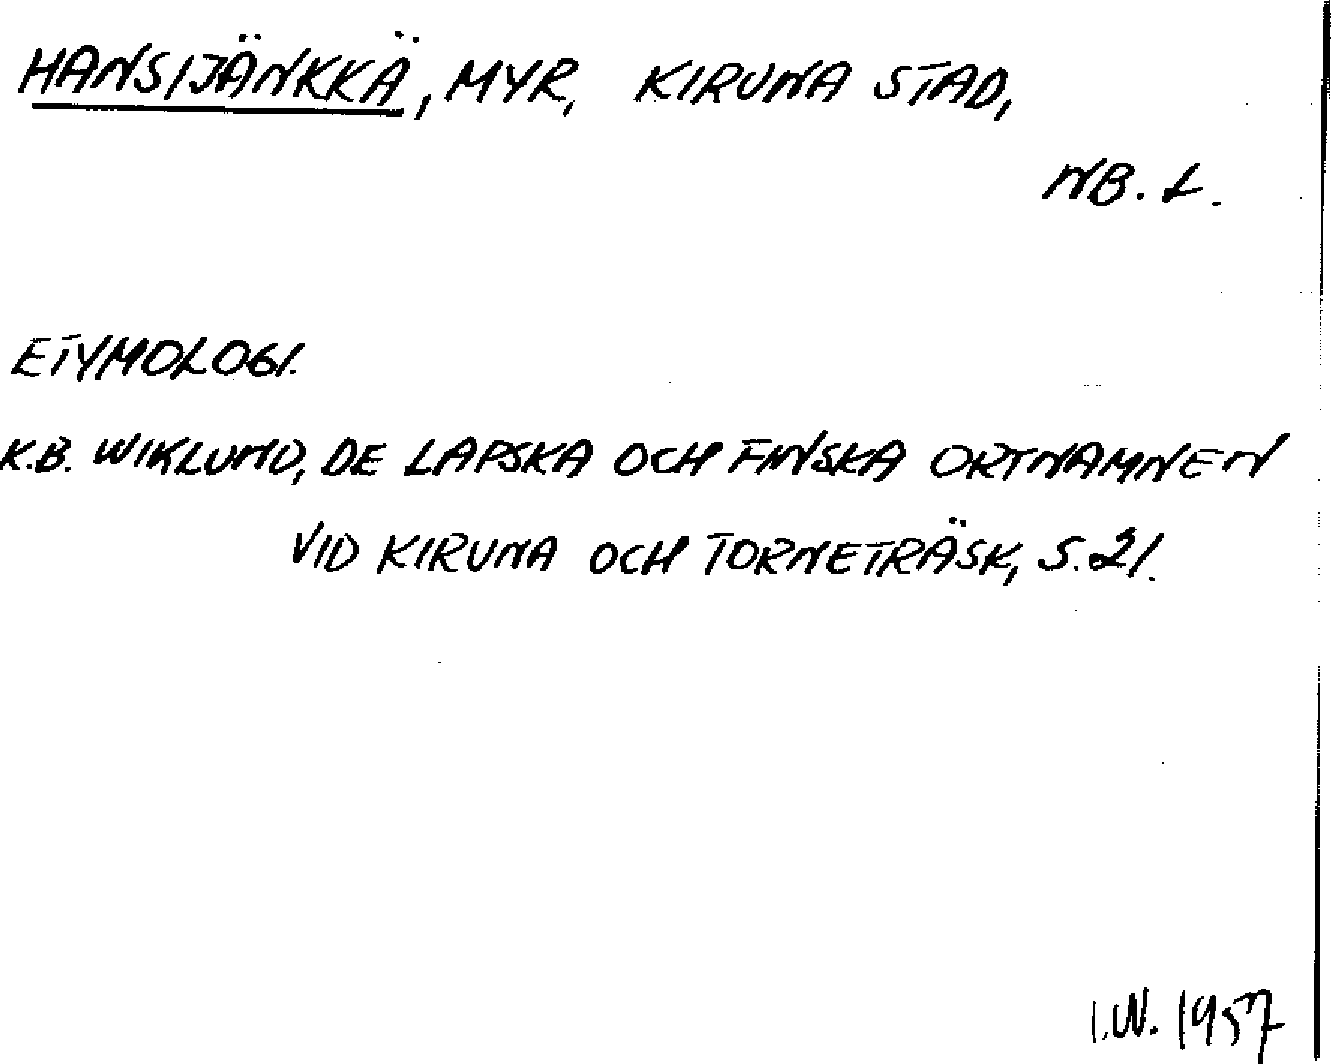 HANSIJÄNKKÄ, MYR, KIRUNA STAD,
NB. L.
ETYMOLOGI.
K.B. WIKLUND, DE LAPSKA OCH FINSKA ORTNAMNEN
VID KIRUNA OCH TORNETRÄSK, S. 21.
I.W. 1957